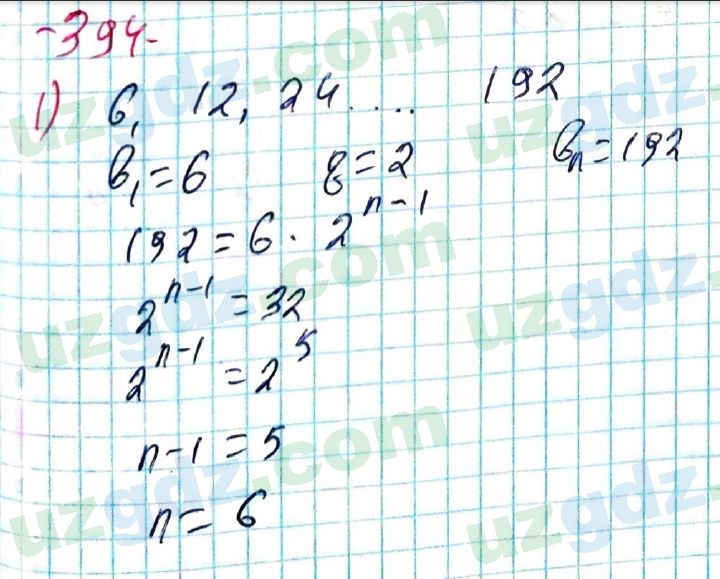 -394-
1) 6, 12, 24 .... 192
b₁ = 6 q = 2 bₙ = 192
192 = 6 · 2ⁿ⁻¹
2ⁿ⁻¹ = 32
2ⁿ⁻¹ = 2⁵
n-1 = 5
n = 6
uzgdz.com
uzgdz.com
uzgdz.com
uzgdz.com
uzgdz.com
uzgdz.com